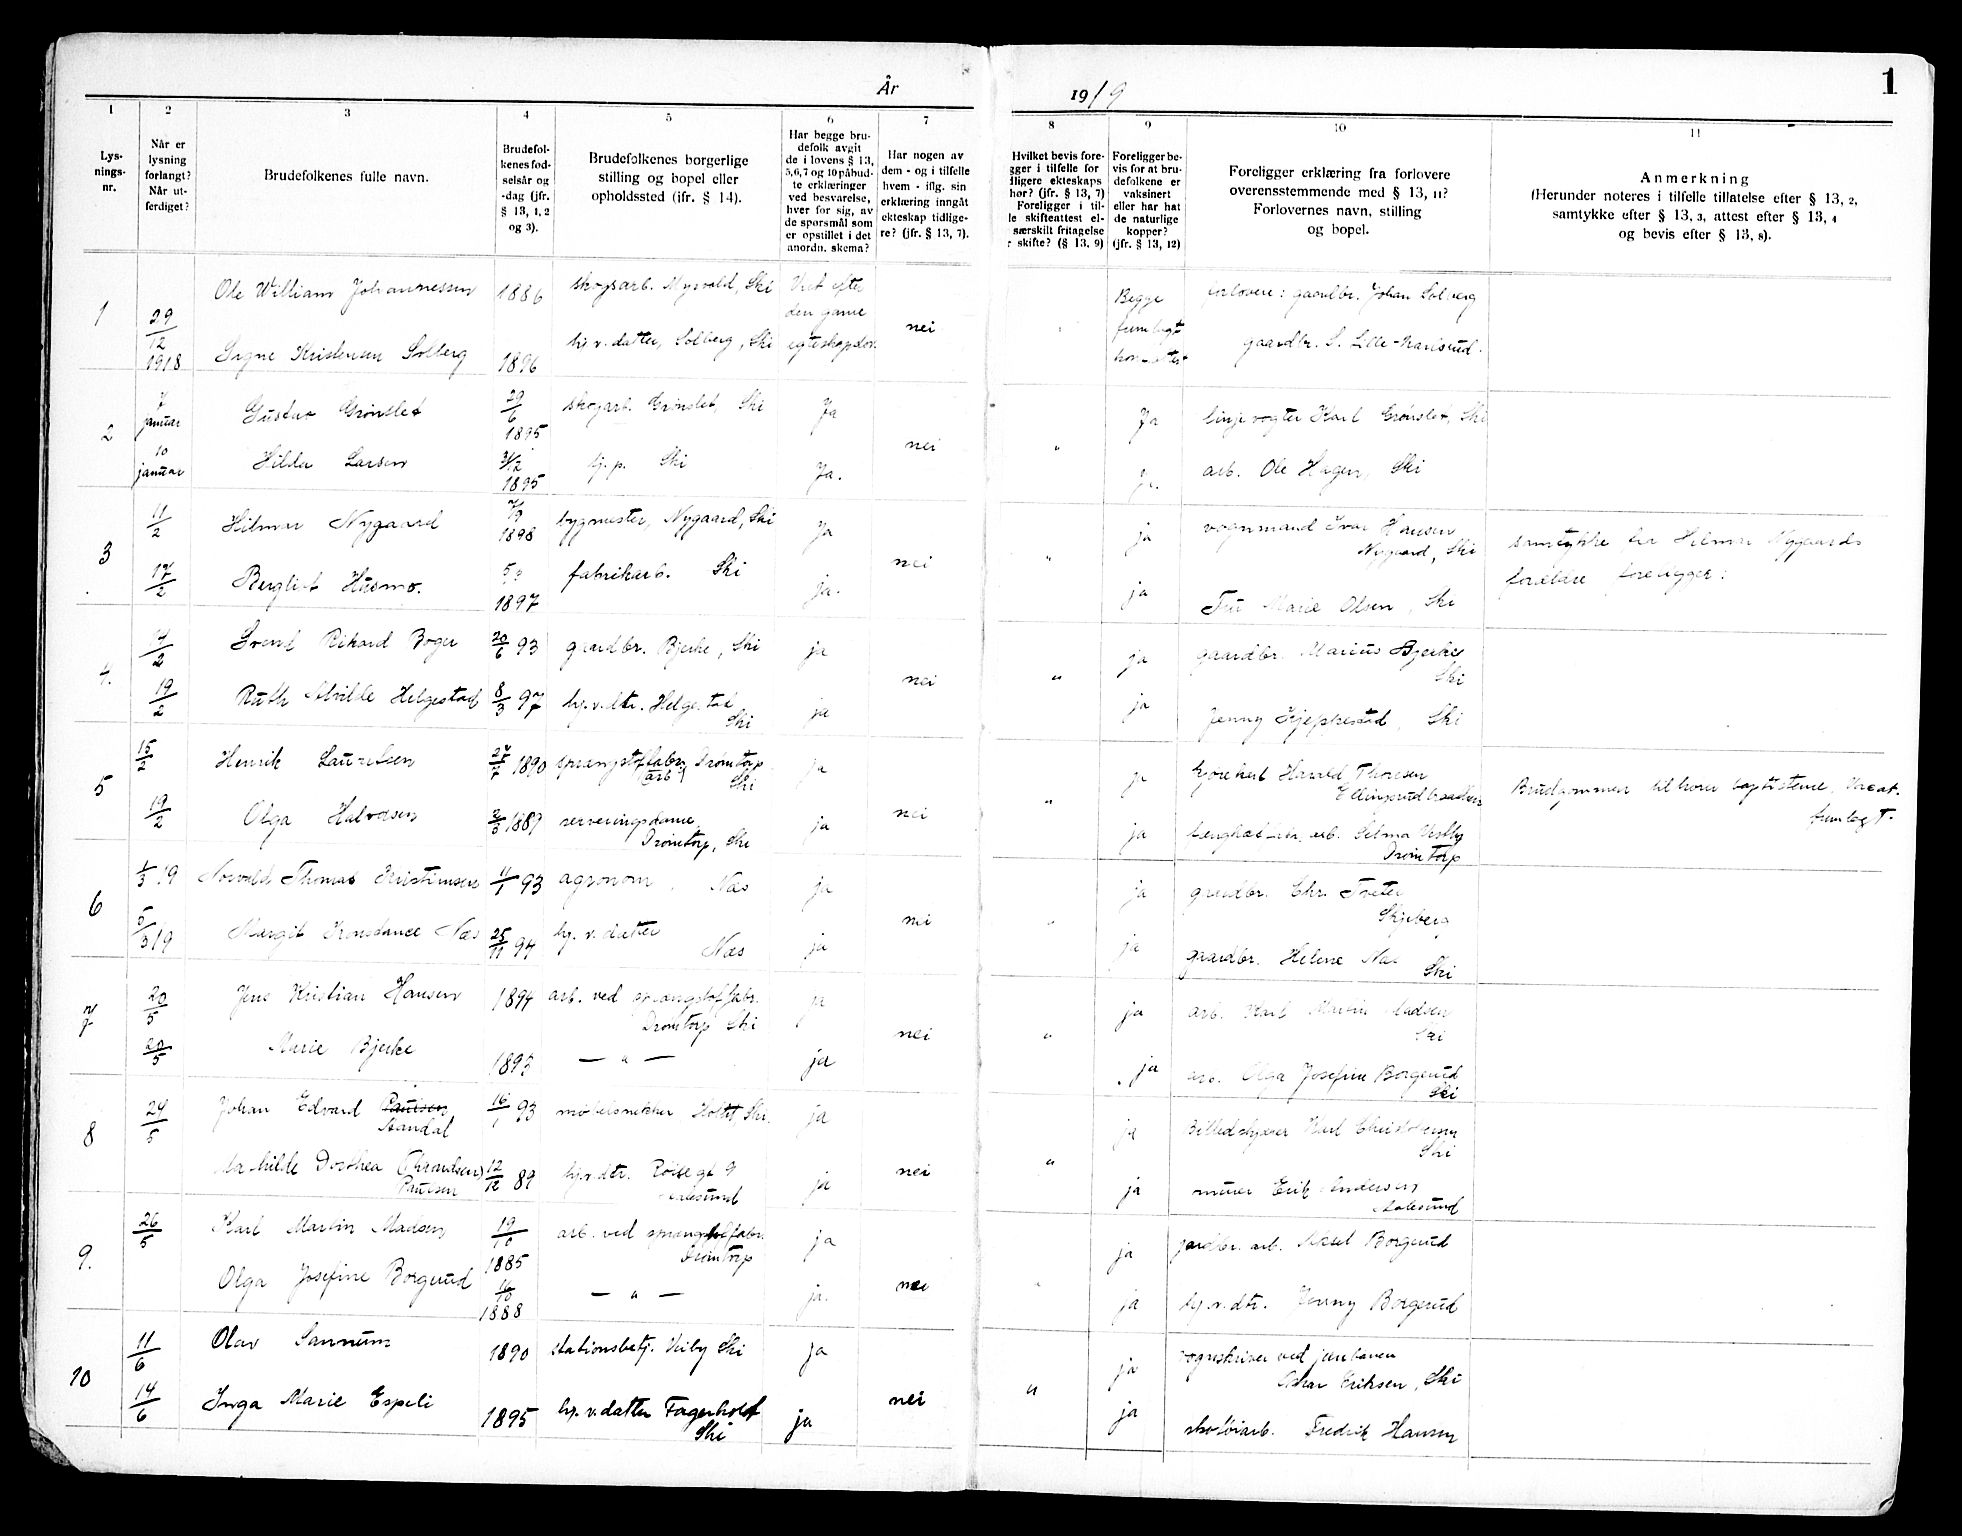 År 1919
1
1
Lysningsnr.
2
Når er lysning forlangt? Når utferdiget?
3
Brudefolkenes fulle navn.
4
Brudefolkenes fødselsår og -dag (jfr. § 13, 1, 2 og 3).
5
Brudefolkenes borgerlige stilling og bopel eller opholdssted (jfr. § 14).
6
Har begge brudefolk avgit de i lovens § 13, 5, 6, 7 og 10 påbudte erklæringer ved besvarelse, hver for sig, av de spørsmål som er opstillet i det anordn. skema?
7
Har nogen av dem - og i tilfelle hvem - iflg. sin erklæring inngåt ekteskap tidligere? (jfr. § 13, 7).
8
Hvilket bevis fore-
gger i tilfelle for
dligere ekteskaps
hør? (jfr. § 13, 7)
Foreligger i til-
le skifteattest el-
særskilt fritagelse
r skifte? (§ 13, 9)
9
Foreligger bevis for at brudefolkene er vaksinert eller har hat de naturlige kopper? (jfr. § 13, 12)
10
Foreligger erklæring fra forlovere overensstemmende med § 13, 11? Forlovernes navn, stilling og bopel.
11
Anmerkning
(Herunder noteres i tilfelle tillatelse efter § 13, 2, samtykke efter § 13, 3, attest efter § 13, 4 og bevis efter § 13, 8).
1
29/12 1918
Ole William Johannessen 1886 skogsarb. Myrvold, Ski
efter den gamle
nei
Begge fremlagt
forlovere: gaardbr. Johan Solberg
Signe Kristensen Solberg 1896 hj. v. datter, Solberg, Ski
gaardbr. S. Lille-Karlsrud.
2
7 januar
Gustav Grønslet 29/6 1895 skogarb. Grønslet, Ski Ja
nei " Ja
linjevogter Karl Grønslet, Ski
10 januar
Hilda Larsen 31/12 1895 hj. p. Ski Ja.
Ja.
arb. Ole Hagen, Ski
3
11/2
Hilmar Nygaard 1898 bygmester, Nygaard, Ski Ja
nei " ja
vognmand Ivar Hansen
Nygaard, Ski
samtykke fra Hilmar Nygaards
forældre foreligger.
17/2
Bergliot Husmo. 1897 fabrikarb. Ski ja.
ja
Fru Marie Olsen, Ski
4.
17/2
Svend Rikard Boger 20/6 93 gaardbr. Bjerke, Ski ja
nei " ja
gaardbr. Marius Bjerke
Ski
19/2
Ruth Alvilde Helgestad 8/3 97 hj. v. dtr. Helgestad
Ski ja
ja
Jenny Kjeppestad, Ski
5
15/2
Henrik Lauritsen 27/7 1890 sprængstoffabr. Drømtorp
arb. Ski ja
nei " ja
Harald Thoresen
Brudgommen tilhører baptisterne,
fremlagt.
19/2
Olga Halvorsen 1887 serveringsdame,
Drømtorp, Ski ja
ja
arb. Selma Vestby
Drømtorp
6
1/3 19
Thomas Kristiansen 11/1 93 agronom, Næs ja
nei " ja
gaardbr. Chr. Tveter
Skjeberg
5/3 19
Margit Konstance Næs 25/11 94 hj. v. datter
Næs ja
ja
gaardbr. Helene Næs Ski
7
20/5
Jens Kristian Hansen 1894 arb. ved sprængstoffabr.
Drømtorp Ski ja
nei " ja
arb. Karl Martin Madsen
Ski
20/5
Marie Bjerke 1893 — " — ja
ja
arb. Olga Josefine Borgerud
Ski
8
24/5
Johan Edvard Paulsen
Standal 16/1 93 møbelsnekker Holtet Ski. ja
nei " ja
Billedskjærer Karl Christensen
Ski
Mathilde Dorthea (Thrandsen)
Paulsen 12/12 89 hj. v. dtr. Røisegt 9
Aalesund ja
ja
murer Erik Andersen
Aalesund
9.
26/5
Karl Martin Madsen 19/10 1885 arb. ved sprængstoffabr.
Drømtorp ja
nei " ja
jordbr. arb. Aksel Borgerud
Olga Josefine Borgerud 16/10 1888 — " — ja.
ja
hj. v. dtr. Jenny Borgerud
10
11/6
Olav Sannum 1890 stationsbetj. Ski ja
nei " ja
vognskriver ved jernbanen
Oskar Eriksen, Ski
14/6
Inga Marie Espeli 1895 hj. v. datter Fagerholt
Ski ja
ja
skotøiarb. Fredrik Hansen